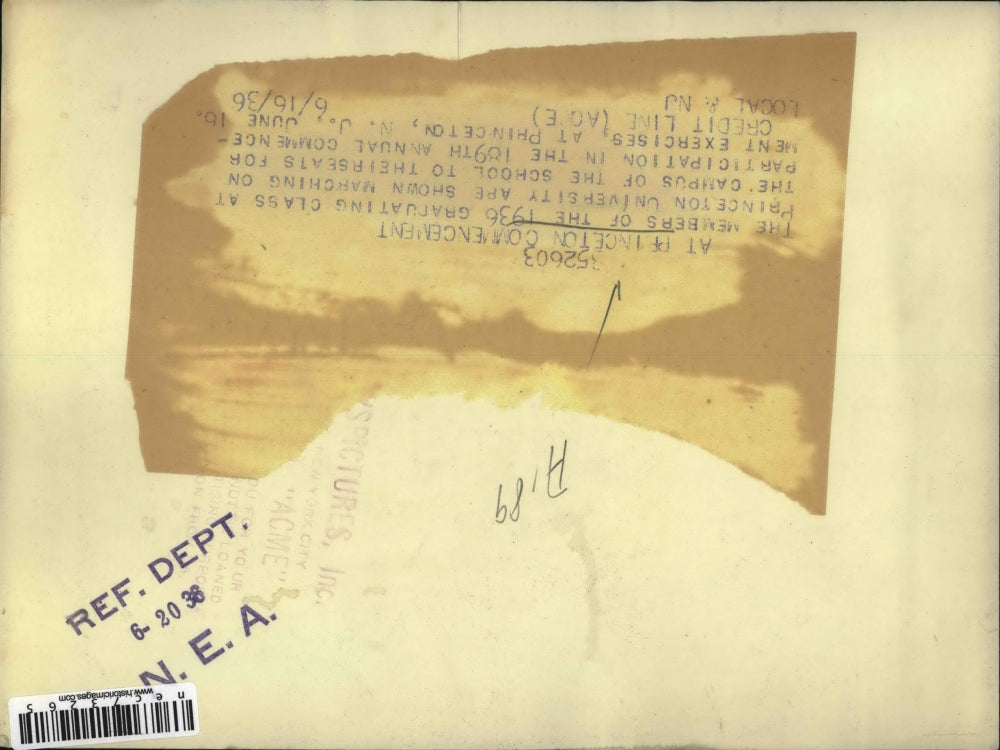 352603
AT PRINCETON COMMENCEMENT
THE MEMBERS OF THE 1936 GRADUATING CLASS AT
PRINCETON UNIVERSITY ARE SHOWN MARCHING ON
THE CAMPUS OF THE SCHOOL TO THEIRSEATS FOR
PARTICIPATION IN THE 189TH ANNUAL COMMENCE-
MENT EXERCISES, AT PRINCETON, N. J., JUNE 16.
CREDIT LINE (ACME) 6/16/36
LOCAL & NJ
PICTURES, Inc.
NEW YORK CITY
"ACME"
YOUR
LOANED
REF. DEPT.
6-20 36
N. E. A.
www.historicimages.com